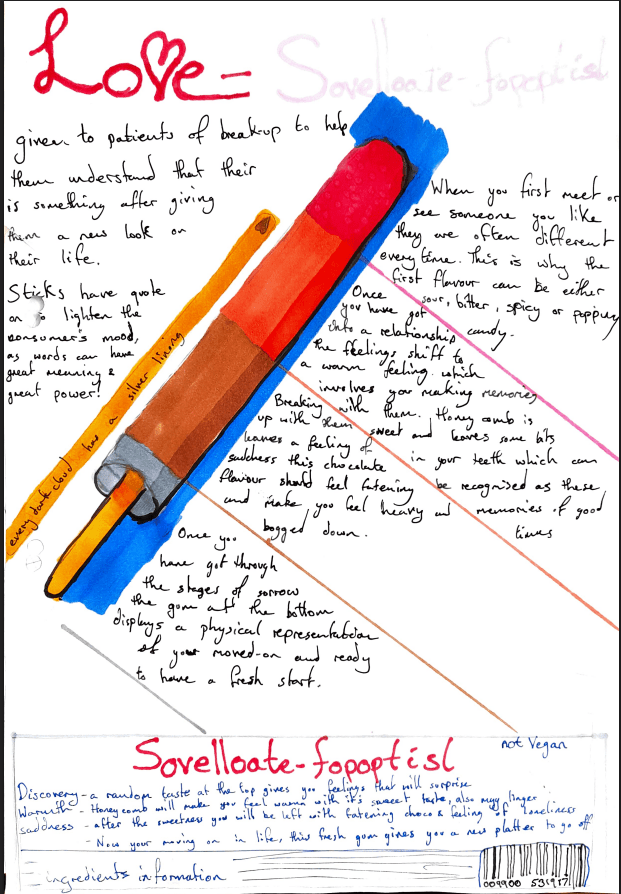 Love = Sovelloate-fopoptisl
given to patients of break-up to help
them understand that their
is something after giving
them a new look on
their life.
Sticks have quote
on to lighten the
consumer's mood,
as words can have
great meaning &
great power!
every dark cloud has a silver lining
When you first meet or
see someone you like
they are often different
every time. This is why the
first flavour can be either
sour, bitter, spicy or peppery
candy.
Once
you have got
into a relationship
the feelings shift to
a warm feeling which
involves you making memories
with them. Honey comb is
sweet and leaves some bits
in your teeth which can
be recognised as these
memories of good
times
Breaking
up with them
leaves a feeling of
saddness this chocolate
flavour should feel fatening
and make you feel heavy and
bogged down.
Once you
have got through
the stages of sorrow
the gum at the bottom
displays a physical representation
of your moved-on and ready
to have a fresh start.
Sovelloate-fopoptisl
not Vegan
Discovery - a random taste at the top gives you feelings that will surprise
Warmth - Honeycomb will make you feel warm with it's sweet taste, also may linger
saddness - after the sweetness you will be left with fatening choco & feeling of loneliness
- Now your moving on in life, this fresh gum gives you a new platter to go off
ingredients information